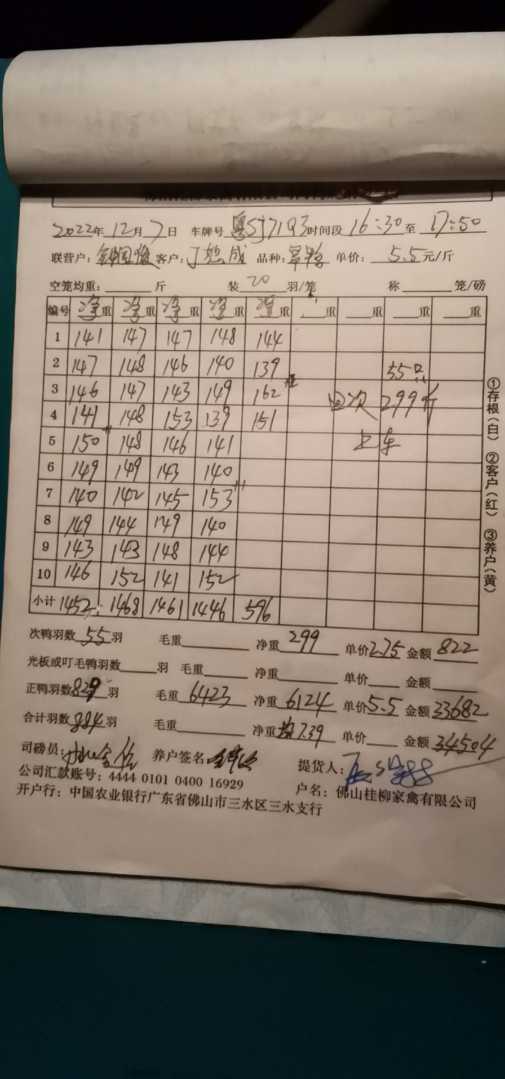 2022年12月7日 车牌号 粤SJ7193 时间段 16:30至17:50
联营户: 客户: 品种: 单价: 5.5元/斤
空笼均重: 斤 装20羽/笼 称 笼/磅
编号 净重 净重 净重 净重 净重 重 重 重 重
1 141 147 147 148 144
2 147 148 146 140 139 55只
3 146 147 143 149 162 次 299斤
4 141 148 153 139 151 上车
5 150 148 146 141
6 149 149 143 140
7 140 142 145 153
8 149 144 149 140
9 143 143 148 144
10 146 152 141 152
小计 1452 1468 1461 1446 596
次鸭羽数55羽 毛重 净重299 单价2.75 金额822
光板或叮毛鸭羽数 羽 毛重 净重 单价 金额
正鸭羽数829羽 毛重6423 净重6124 单价5.5 金额33682
合计羽数884羽 毛重 净重 7.39 单价 金额34504
司磅员: 养户签名: 提货人:
公司汇款账号: 4444 0101 0400 16929 户名: 佛山桂柳家禽有限公司
开户行: 中国农业银行广东省佛山市三水区三水支行
①存根(白) ②客户(红) ③养户(黄)